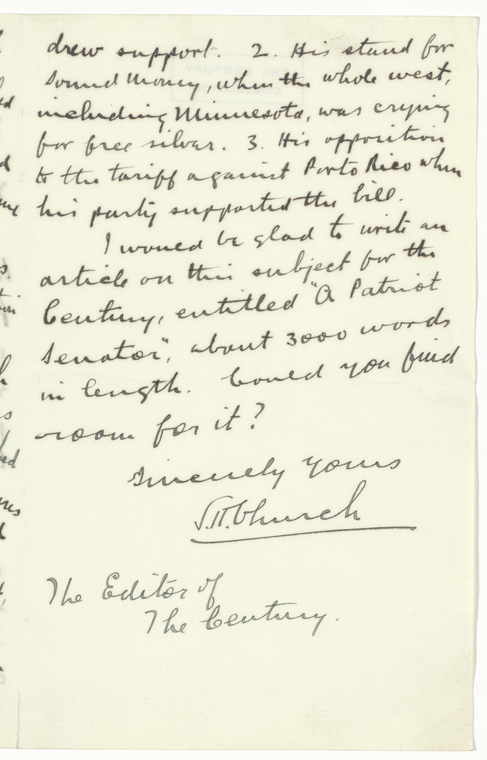 drew support. 2. His stand for
sound money, when the whole west,
including Minnesota, was crying
for free silver. 3. His opposition
to the tariff against Porto Rico when
his party supported the bill.
I would be glad to write an
article on this subject for the
Century, entitled "A Patriot
Senator", about 3000 words
in length. Could you find
room for it?
Sincerely yours
S.H. Church
The Editor of
The Century.